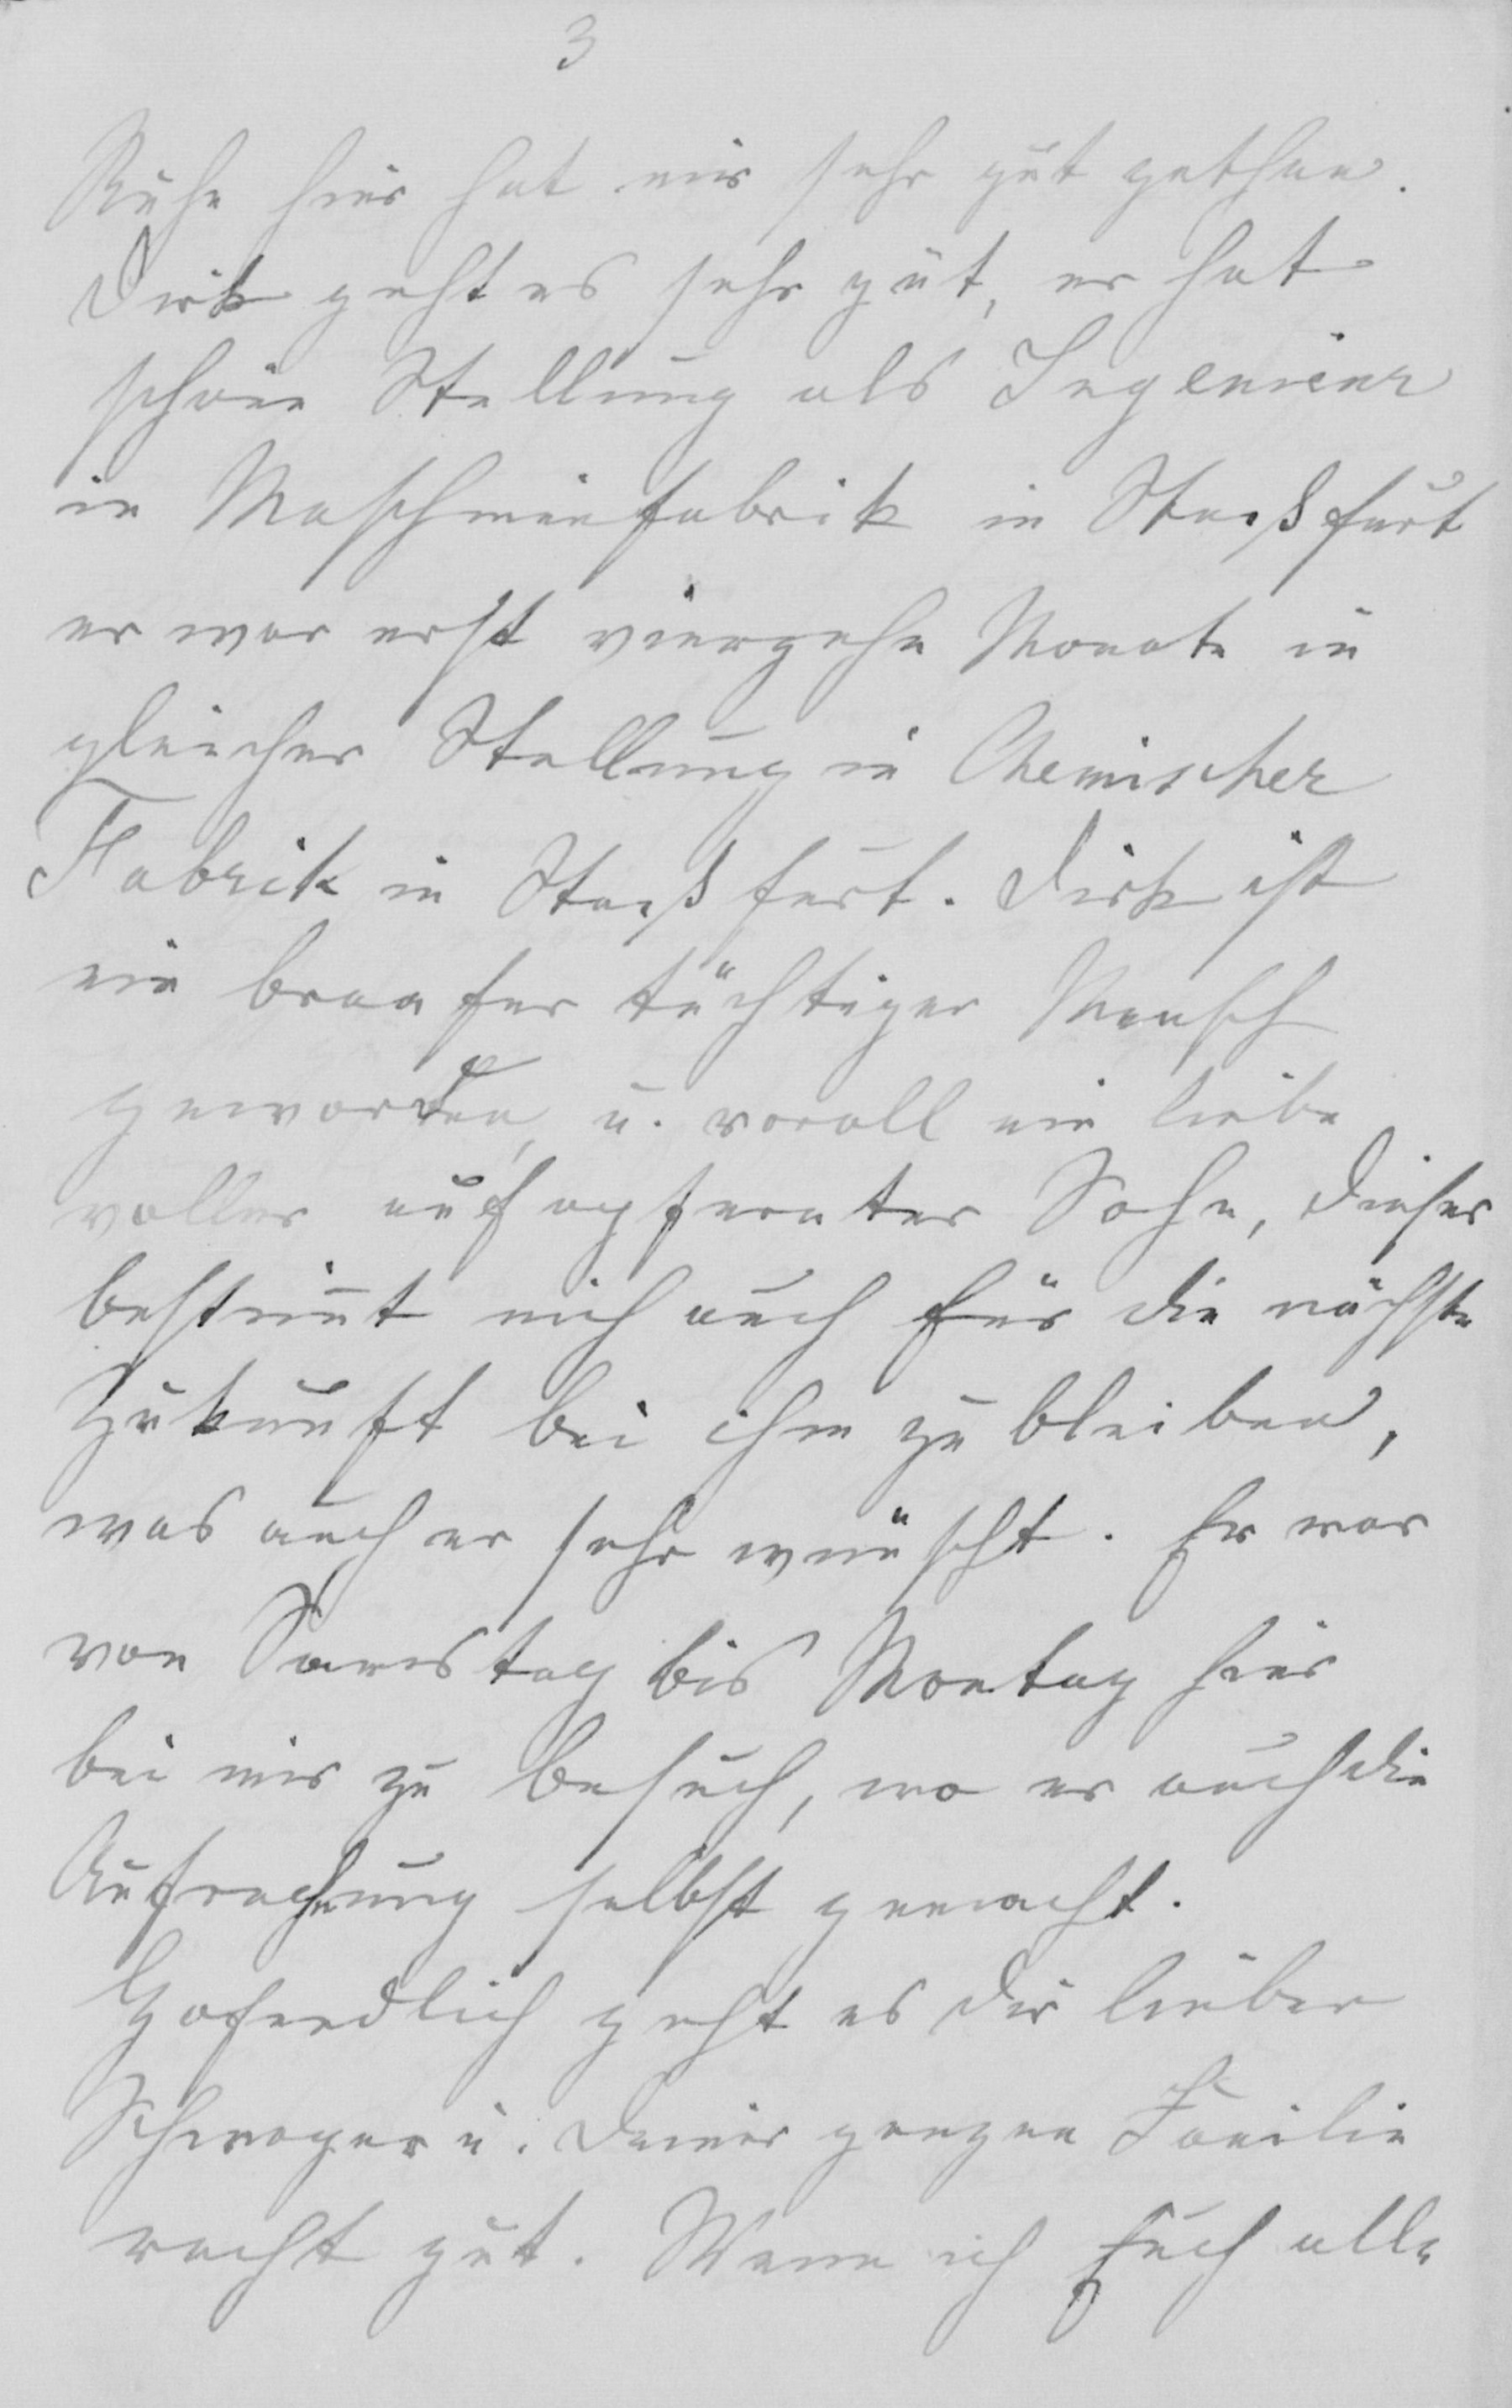 3
Ruhe hier hat mir sehr gut gethan.
Dirk geht es sehr gut, er hat
schöne Stellung als Ingenieur
in Maschinenfabrik in Staßfurt
er war erst vierzehn Monate in
gleicher Stellung in Chemischer
Fabrik in Staßfurt. Dirk ist
ein braafer tüchtiger Mensch
geworden, u. vorall ein liebe
voller aufopfernter Sohn, dieser
bestimt mich auch für die nächste
Zukunft bei ihm zu bleiben,
was auch er sehr wünscht. Er war
von Samstag bis Montag hier
bei mir zu Besuch, wo er auch die
Aufrechnung selbst gemacht.
Hofendlich geht es Dir lieber
Schwager u. Deiner ganzen Familie
recht gut. Wenn ich Euch alle